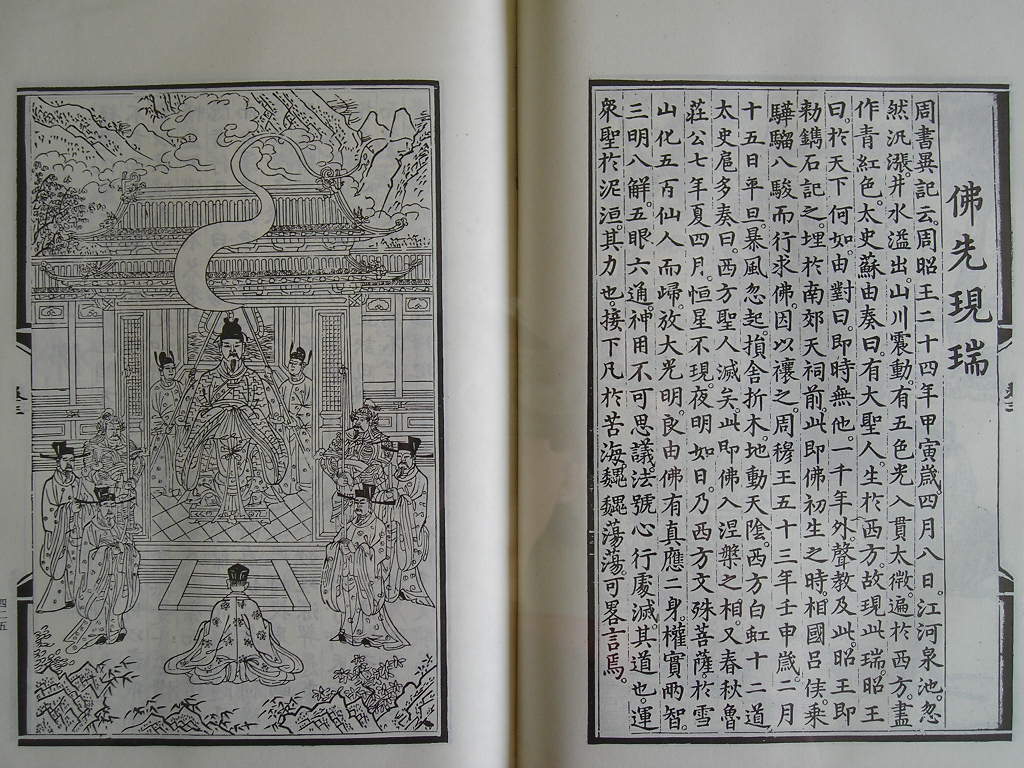 佛先現瑞
周書異記云。周昭王二十四年甲寅歲。四月八日。江河泉池。忽
然汎漲。井水溢出。山川震動。有五色光入貫太微。遍於西方。盡
作青紅色。太史蘇由奏曰。有大聖人。生於西方。故現此瑞。昭王
曰。於天下何如。由對曰。即時無他。一千年外。聲教及此。昭王即
勅鐫石記之。埋於南郊天祠前。此即佛初生之時。相國呂侯乘
驊騮八駿而行求佛。因以禳之。周穆王五十三年壬申歲二月
十五日平旦。暴風忽起。損舍折木。地動天陰。西方白虹十二道
太史扈多奏曰。西方聖人滅矣。此即佛入涅槃之相。又春秋魯
莊公七年夏四月。恒星不現。夜明如日。乃西方文殊菩薩。於雪
山化五百仙人。而歸放大光明。良由佛有真應二身。權實兩智。
三明八解。五眼六通。神用不可思議。法號心行處滅。其道也。運
衆聖於泥洹。其力也。接下凡於苦海。巍巍蕩蕩。可畧言焉。
四一五